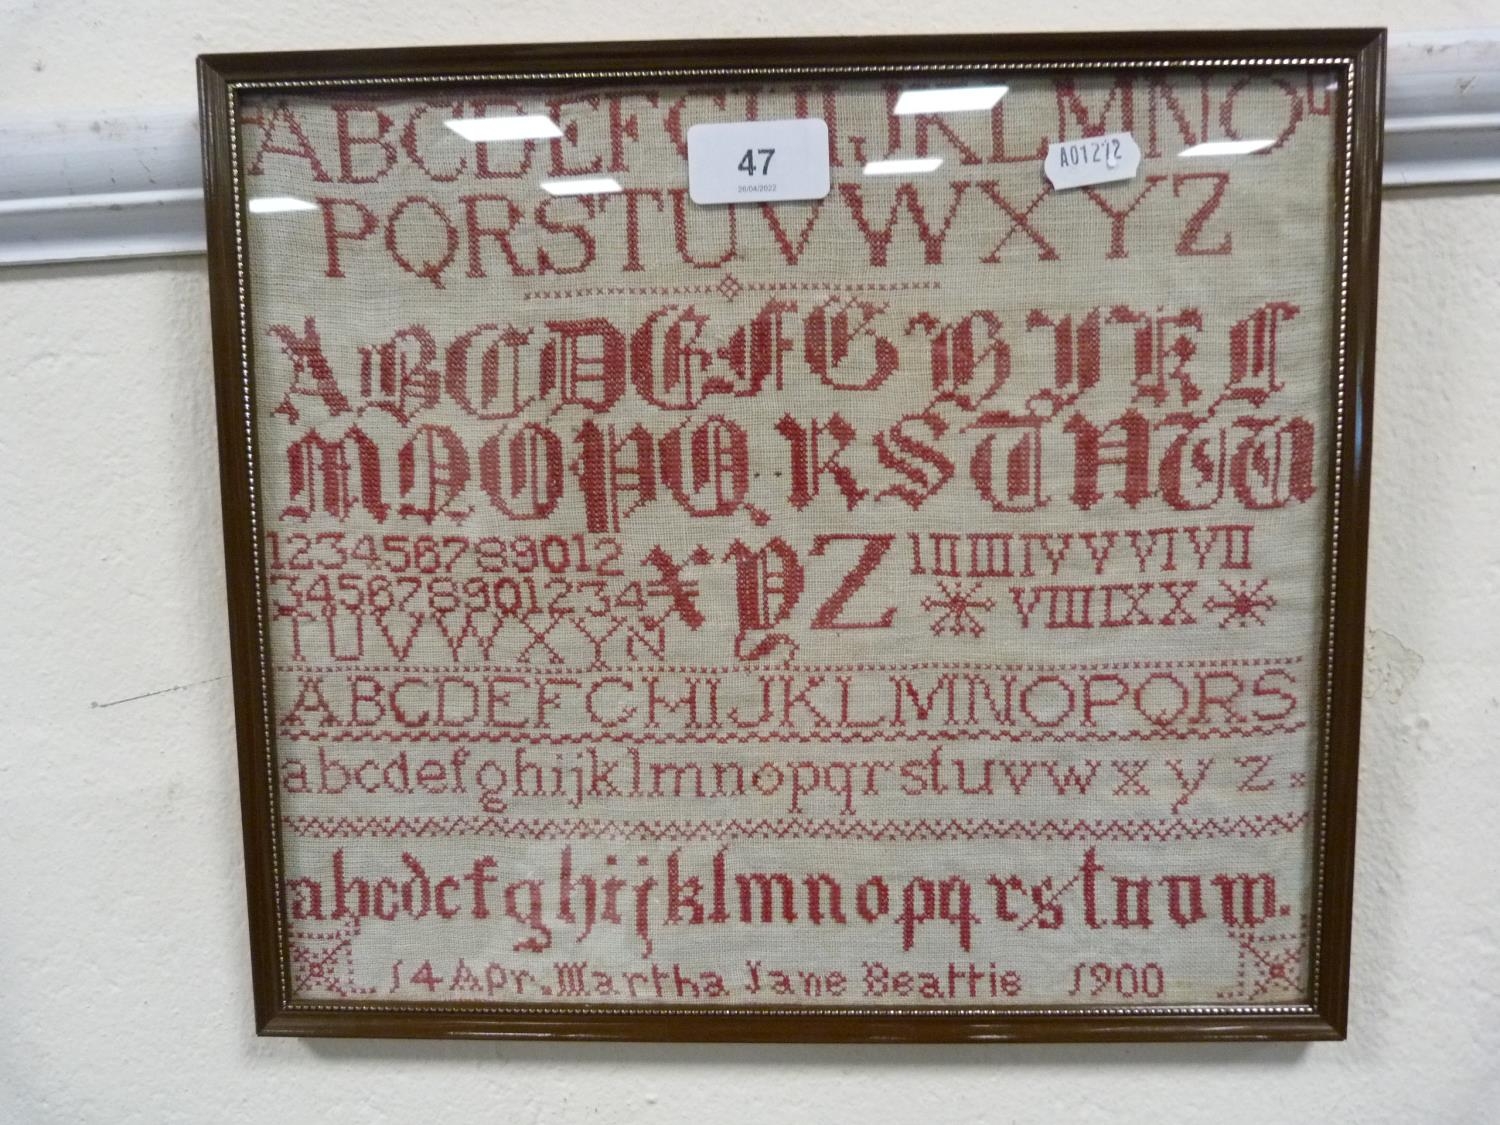 ABCDEFGHIJKLMNO
47
26/04/2022
A01272
PQRSTUVWXYZ
ABCDEFGHIJKL
MNOPQ RSTUVW
123456789012
345678901234
XYZ
I II III IV V VI VII
VIII IX X
TUVWXYN
ABCDEFGHIJKLMNOPQRS
abcdefghijklmnopqrstuvwxyz
abcdefghijklmnopqrstuvw.
14 Apr. Martha Jane Beattie 1900